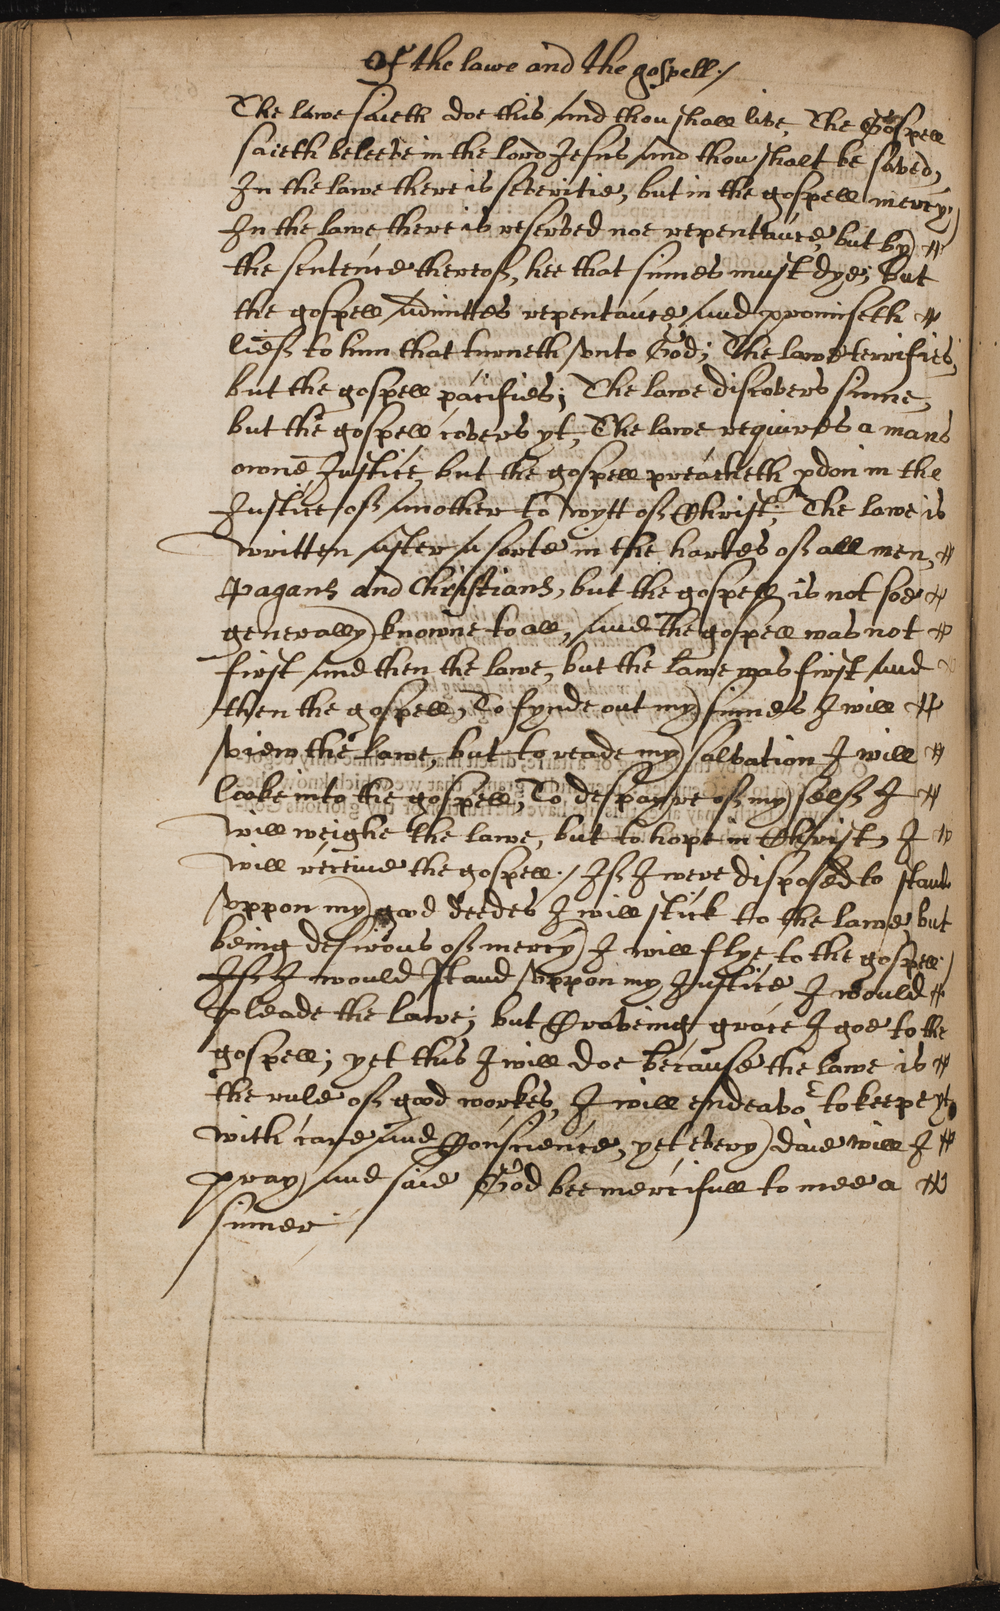 Of the lawe and the gospell./
The lawe saieth doe this and thou shall live, The Gospell
saieth beleeve in the lord Jesus and thou shalt be saved,
In the lawe there is severitie, but in the gospell mercy,
In the lawe there is reserved noe repentance, but by
the sentence thereof, hee that sinnes must dye; but
the gospell admittes repentance and promiseth
lief to him that turneth unto God; The lawe terrifies,
but the gospell pacifies; The lawe discovers sinne,
but the gospell covers yt, The lawe requires a mans
owne Justice, but the gospell preacheth pdon in the
Justice of another to wytt of Christ; The lawe is
written after a sorte in the hartes of all men,
Pagans and Christians, but the gospell is not soe
generally knowne to all, and The gospell was not
first and then the lawe, but the lawe was first and
then the gospell, To fynde out my sinnes I will
view the lawe, but to reade my salvation I will
looke into the gospell; To despayre of my self I
will weighe the lawe, but to hope in Christ, I
will receive the gospell./ If I were disposed to stand
uppon my good deedes I will stick to the lawe, but
being desirous of mercy I will flye to the gospell
If I would stand uppon my Justice I would
pleade the lawe; but Craveing grace I goe to the
gospell; yet this I will doe because the lawe is
the rule of good workes, I will endeavor to keepe yt
with care and Conscience, yet every daie will I
pray and saie God bee mercifull to mee a
sinner